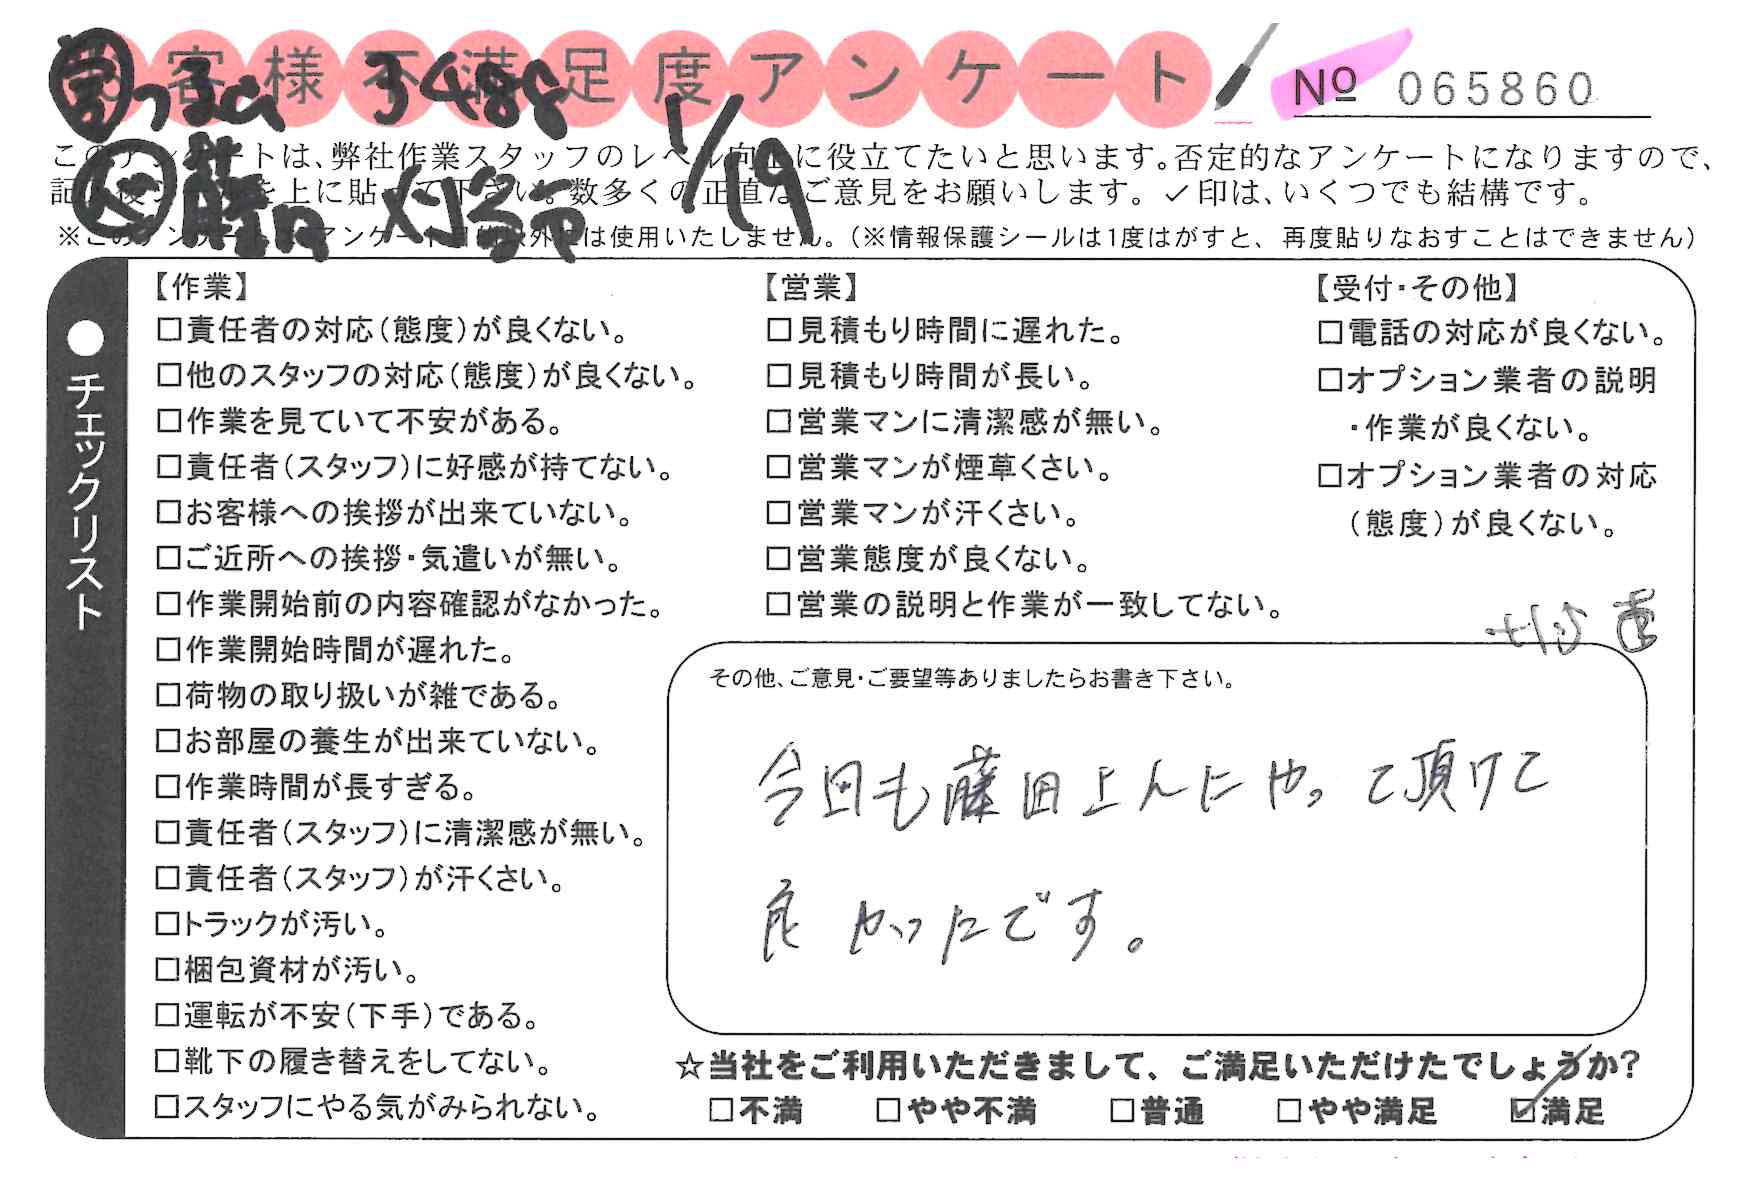 お客様不満足度アンケート
№ 065860
3488
1/19
このアンケートは、弊社作業スタッフのレベル向上に役立てたいと思います。否定的なアンケートになりますので、
を上に貼って下さい。数多くの正直なご意見をお願いします。✓印は、いくつでも結構です。
※このアンケートはアンケート目的以外には使用いたしません。(※情報保護シールは1度はがすと、再度貼りなおすことはできません)
●チェックリスト
【作業】
□責任者の対応(態度)が良くない。
□他のスタッフの対応(態度)が良くない。
□作業を見ていて不安がある。
□責任者(スタッフ)に好感が持てない。
□お客様への挨拶が出来ていない。
□ご近所への挨拶・気遣いが無い。
□作業開始前の内容確認がなかった。
□作業開始時間が遅れた。
□荷物の取り扱いが雑である。
□お部屋の養生が出来ていない。
□作業時間が長すぎる。
□責任者(スタッフ)に清潔感が無い。
□責任者(スタッフ)が汗くさい。
□トラックが汚い。
□梱包資材が汚い。
□運転が不安(下手)である。
□靴下の履き替えをしてない。
□スタッフにやる気がみられない。
【営業】
□見積もり時間に遅れた。
□見積もり時間が長い。
□営業マンに清潔感が無い。
□営業マンが煙草くさい。
□営業マンが汗くさい。
□営業態度が良くない。
□営業の説明と作業が一致してない。
【受付・その他】
□電話の対応が良くない。
□オプション業者の説明
・作業が良くない。
□オプション業者の対応
(態度)が良くない。
その他、ご意見・ご要望等ありましたらお書き下さい。
今回も藤田さんにやって頂けて
良かったです。
☆当社をご利用いただきまして、ご満足いただけたでしょうか?
□不満 □やや不満 □普通 □やや満足 ☑満足